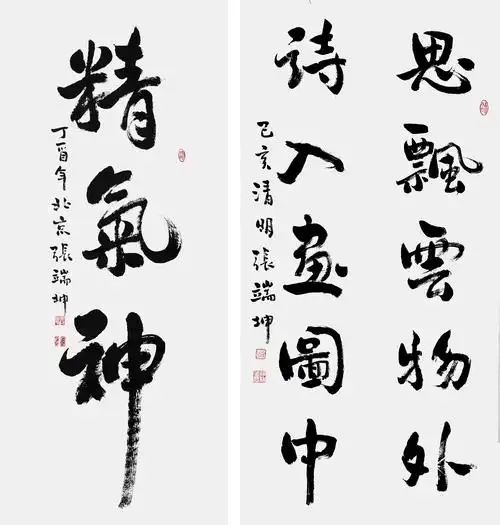 精氣神
丁酉年北京張端坤
思飄雲物外
詩入畫圖中
己亥清明張端坤